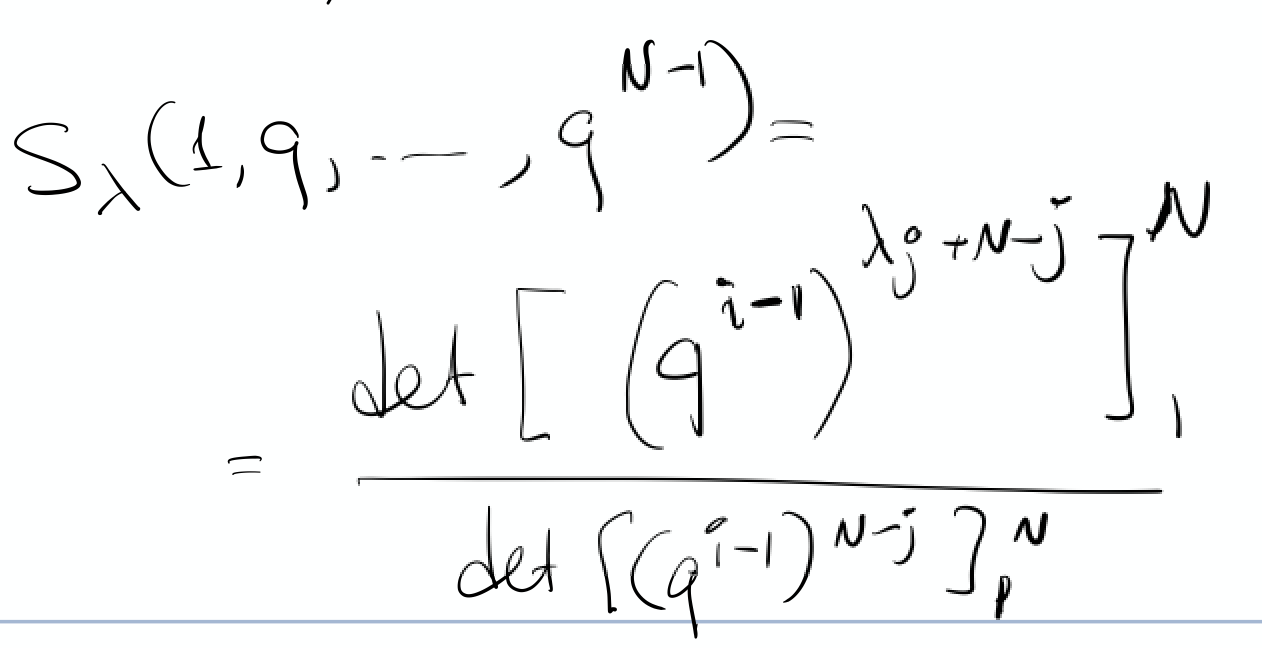 S_λ(1, q, ..., q^{N-1}) =
= det[(q^{i-1})^{λ_j+N-j}]_1^N / det[(q^{i-1})^{N-j}]_1^N